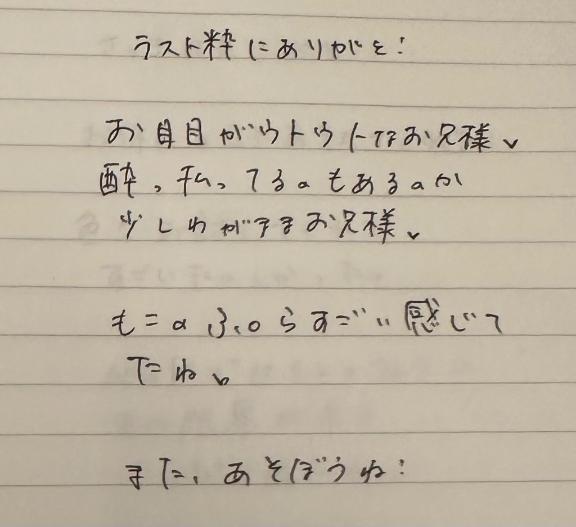 ラスト粋にありがと!
お目目がウトウトなお兄様
酔っ払ってるのもあるのか
少しわがままお兄様
すごい感じて
たね
また、あそぼうね!